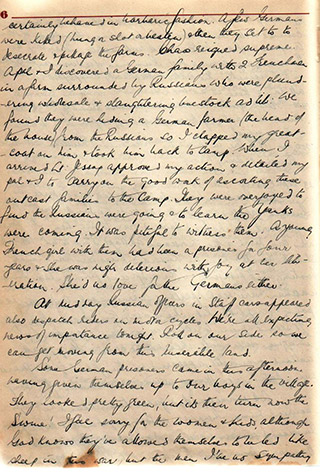 6
certainly behaved in barbaric fashion. A few Germans
were killed (hung & shot or beaten) & then they set to to
desecrate & pillage the farms. Chaos reigned supreme.
& I discovered a German family with 2 Frenchmen
in a farm surrounded by Russians who were plund-
ering wholesale & slaughtering livestock ad lib. We
found they were hiding a German farmer (the head of
the house) from the Russians so I clapped my great-
coat on him & took him back to camp. When I
arrived Lt. approved my action & detailed my
pal & I to carry on the good work of escorting these
outcast families to the Camp. They were overjoyed to
find the Russians were going & to learn the Yanks
were coming. It was pitiful to witness them. A young
French girl with them had been a prisoner for four
years & she was nigh delirious with joy at her lib-
eration. She'd no love for the Germans either.
At midday Russian officers in Staff cars appeared
also despatch riders on motor cycles. We're all expecting
news of importance tonight. on our side so we
can get moving from this miserable land.
Some German prisoners came in this afternoon
having given themselves up to our boys in the village.
They looked pretty green, but its their turn now the
Swine! I feel sorry for the women & kids although
God knows they've allowed themselves to be led like
sheep in this war, but the men I've no sympathy